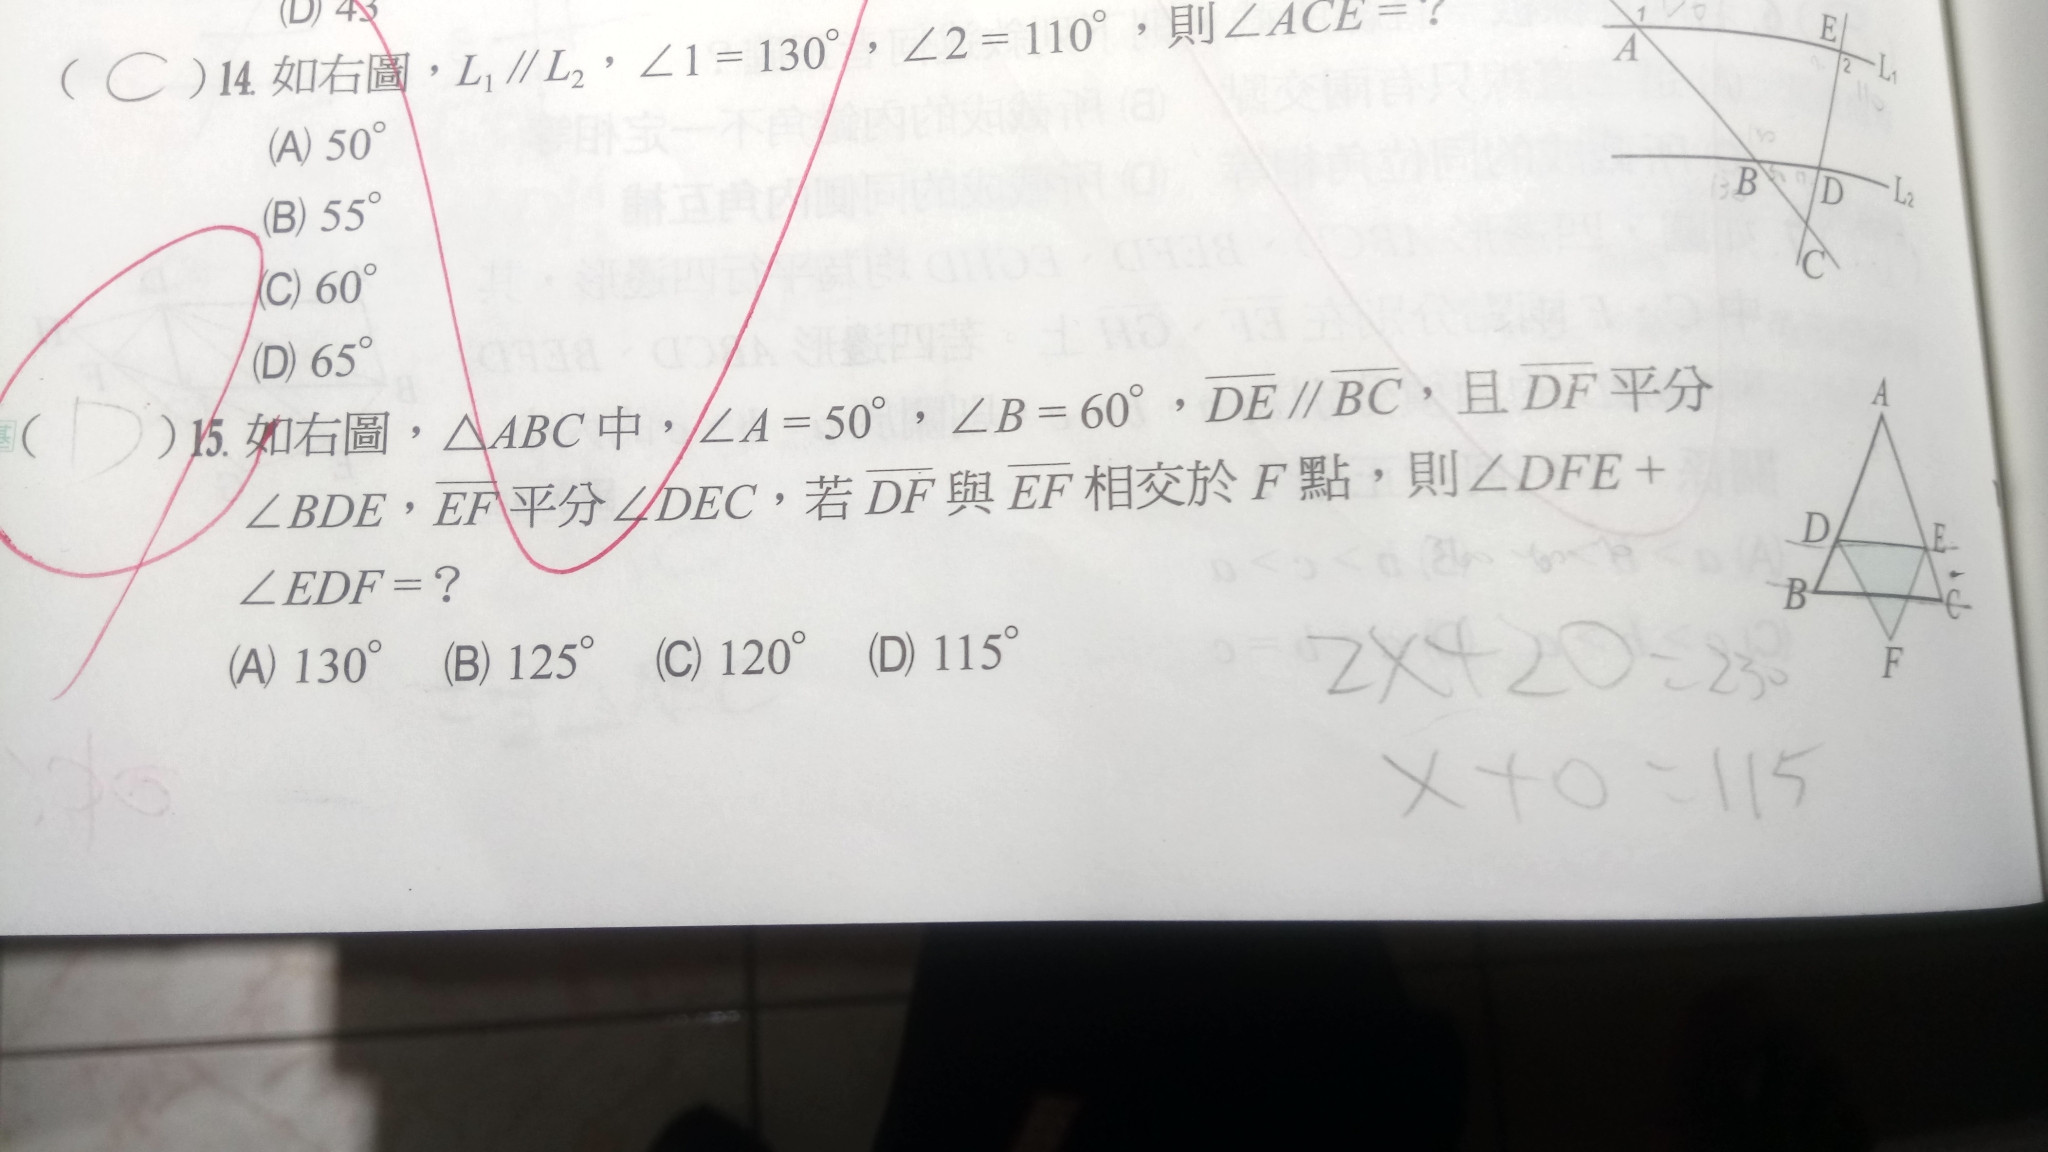 (D) 43
( C ) 14. 如右圖，L₁ // L₂，∠1 = 130°，∠2 = 110°，則∠ACE = ?
(A) 50°
(B) 55°
(C) 60°
(D) 65°
1
A
E
2
L₁
110
B
D
L₂
C
( D ) 15. 如右圖，△ABC 中，∠A = 50°，∠B = 60°，DE // BC，且 DF 平分
∠BDE，EF 平分∠DEC，若 DF 與 EF 相交於 F 點，則∠DFE +
∠EDF = ?
(A) 130° (B) 125° (C) 120° (D) 115°
A
D
E
B
C
F
2X+2O=230
X+O=115